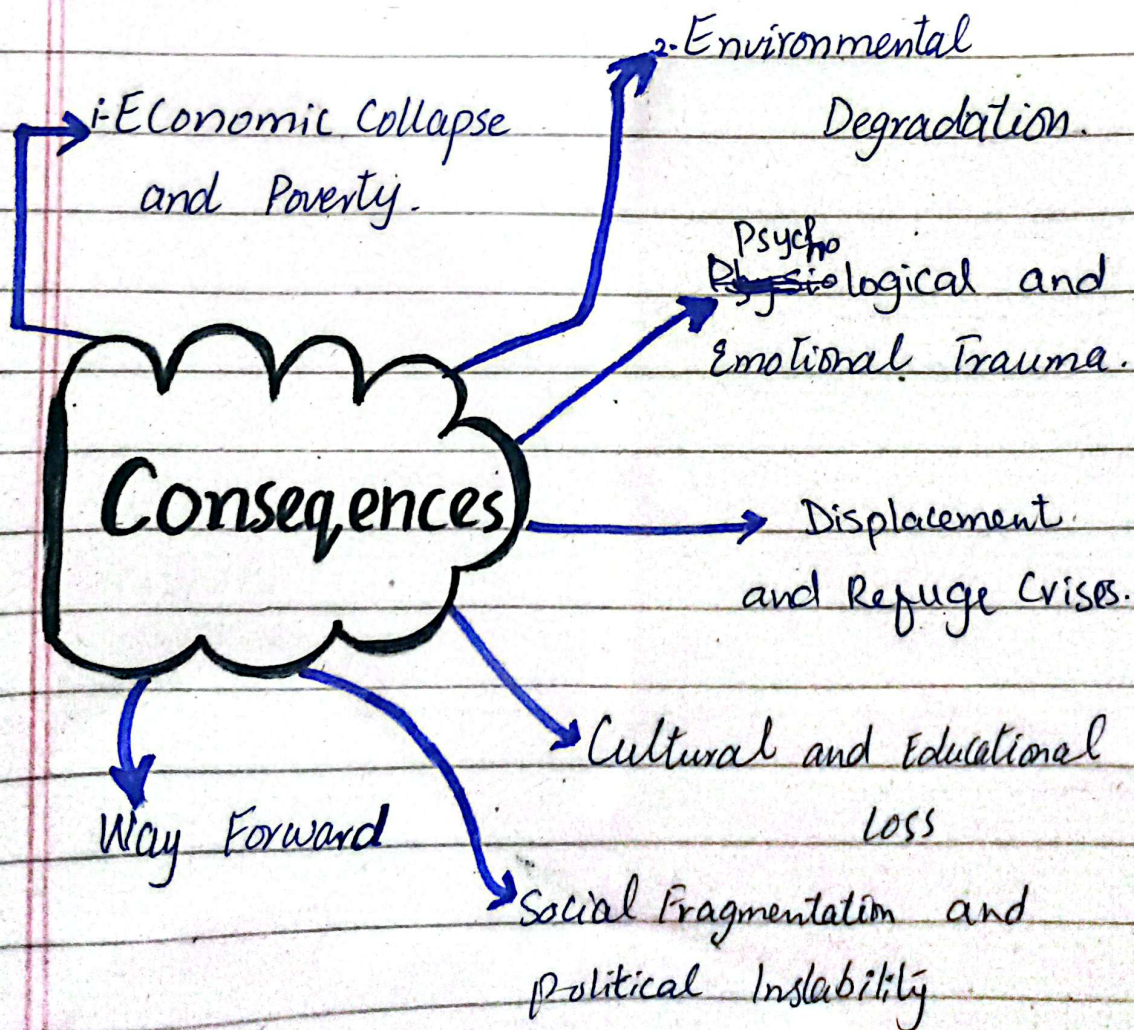 i-Economic Collapse
and Poverty.
2-Environmental
Degradation.
Psycho
logical and
Emotional Trauma.
Conseqences
Displacement
and Refuge Crises.
Cultural and Educational
Loss
Way Forward
Social Fragmentation and
political Instability